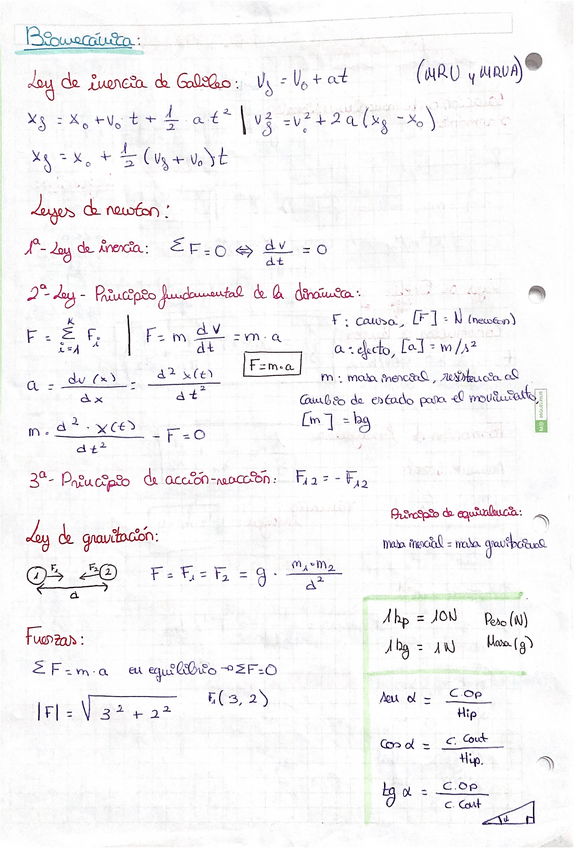 Biomecánica:
Ley de inercia de Galileo: vf = v₀ + at (MRU y MRUA)
xf = x₀ + v₀ t + 1/2 a t² | vf² = v₀² + 2a(xf - x₀)
xf = x₀ + 1/2 (vf + v₀)t
Leyes de newton:
1ª- Ley de inercia: ΣF = 0 ⇔ dv/dt = 0
2ª- Ley - Principio fundamental de la dinámica:
F = Σ Fi (i=1, k) | F = m dv/dt = m·a
F = m·a
a = dv(x)/dx = d²x(t)/dt²
m· d²·x(t)/dt² - F = 0
F: causa, [F] = N (newton)
a: efecto, [a] = m/s²
m: masa inercial, resistencia al
cambio de estado para el movimiento,
[m] = kg
3ª- Principio de acción-reacción: F₁₂ = - F₁₂
Principio de equivalencia:
masa inercial = masa gravitacional
Ley de gravitación:
1 F₁ F₂ 2
d
F = F₁ = F₂ = g · m₁·m₂/d²
1kp = 10N Peso (N)
1kg = 1N Masa (g)
Fuerzas:
ΣF = m·a en equilibrio → ΣF=0
|F| = √3² + 2² F₁(3, 2)
sen α = C.OP/Hip
cos α = C. Cont/Hip.
tg α = C.OP/C. Cont
α